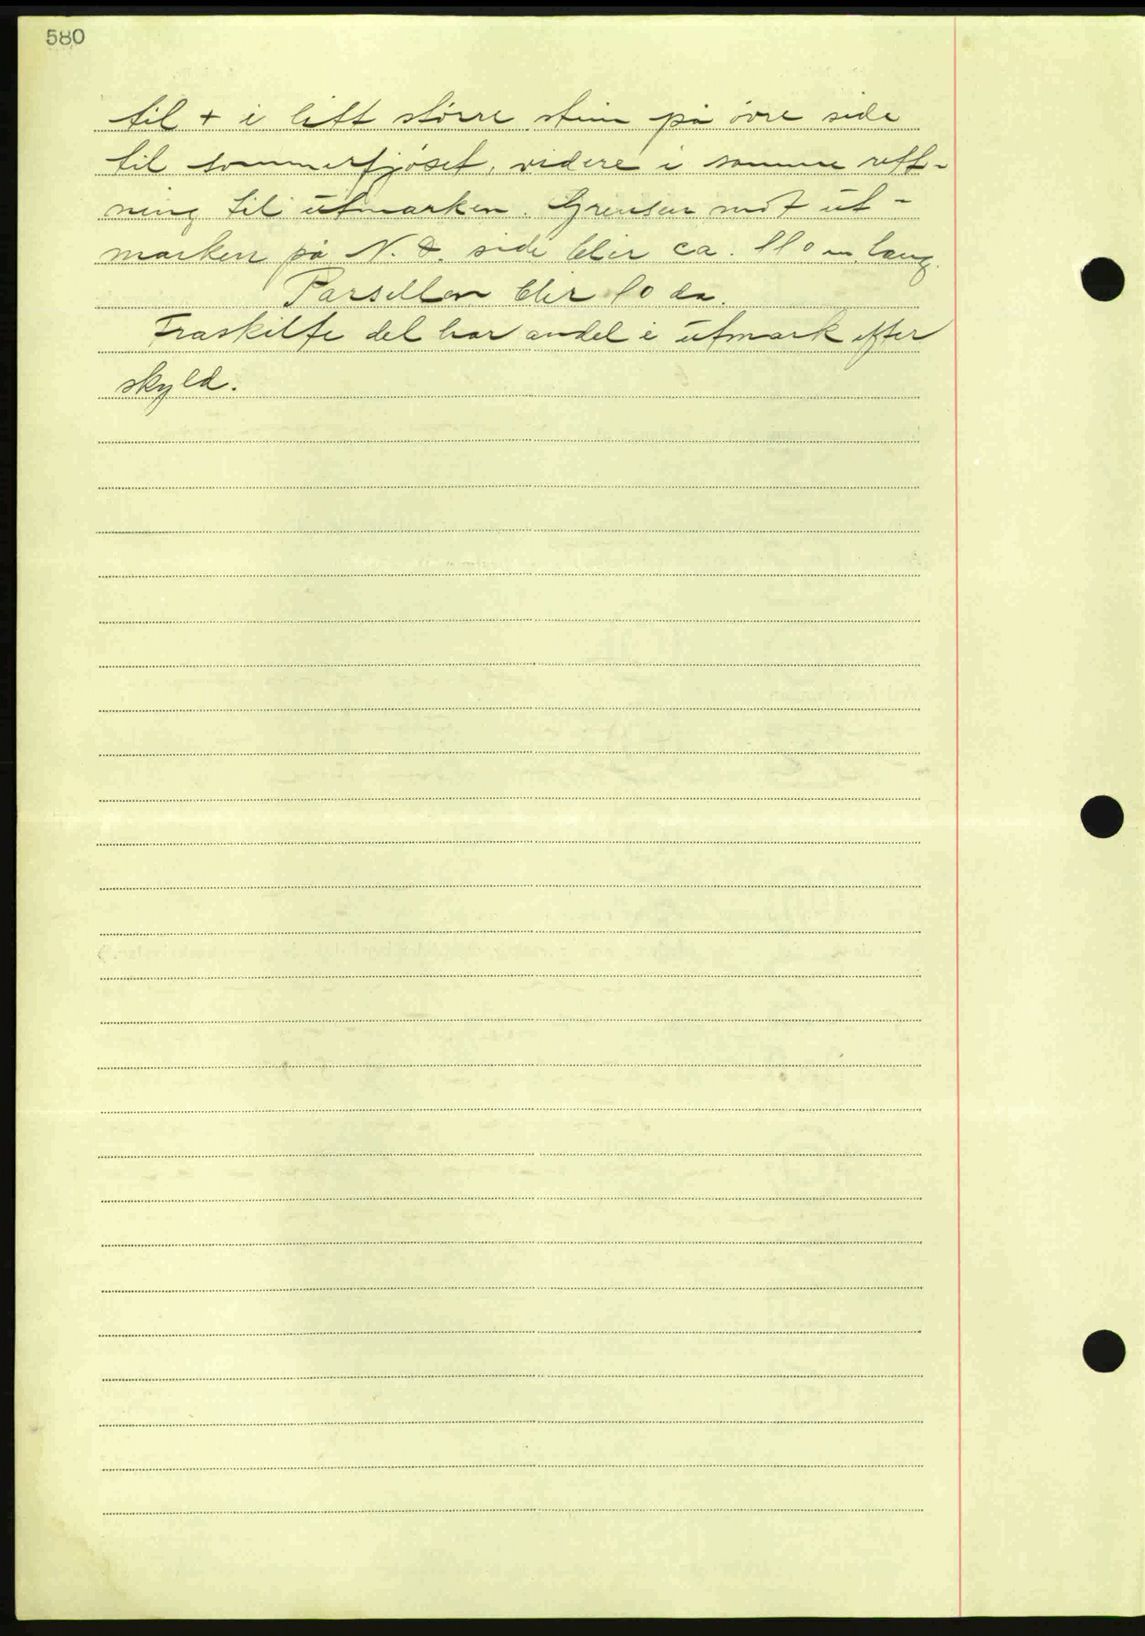 580
til + i litt större stein på övre side
til sommerfjöset, videre i samme rett-
ning til utmarken. Grensen mot ut-
marken på N. Ö. side blir ca. 110 m. lang.
Parsellen blir 10 da.
Fraskilte del har andel i utmark efter
skyld.